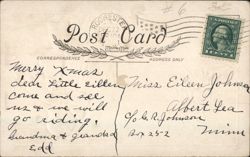 ROCHESTER
Post Card
CORRESPONDENCE
ADDRESS ONLY
Merry Xmas
dear Little Eillen
come and see
us & we will
go riding.
Grandma & grandad
Edd
Miss Eileen Johnson
Albert Lea
c/o C. R. Johnson
Box 252
Minn